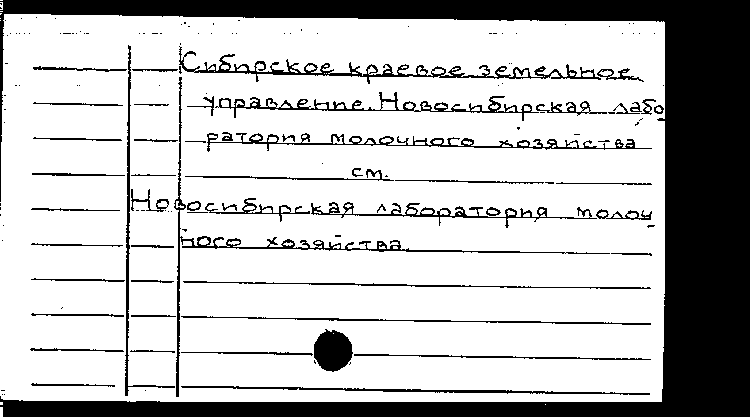 Сибирское краевое земельное
управление. Новосибирская лабо
ратория молочного хозяйства
см.
Новосибирская лаборатория молоч
ного хозяйства.